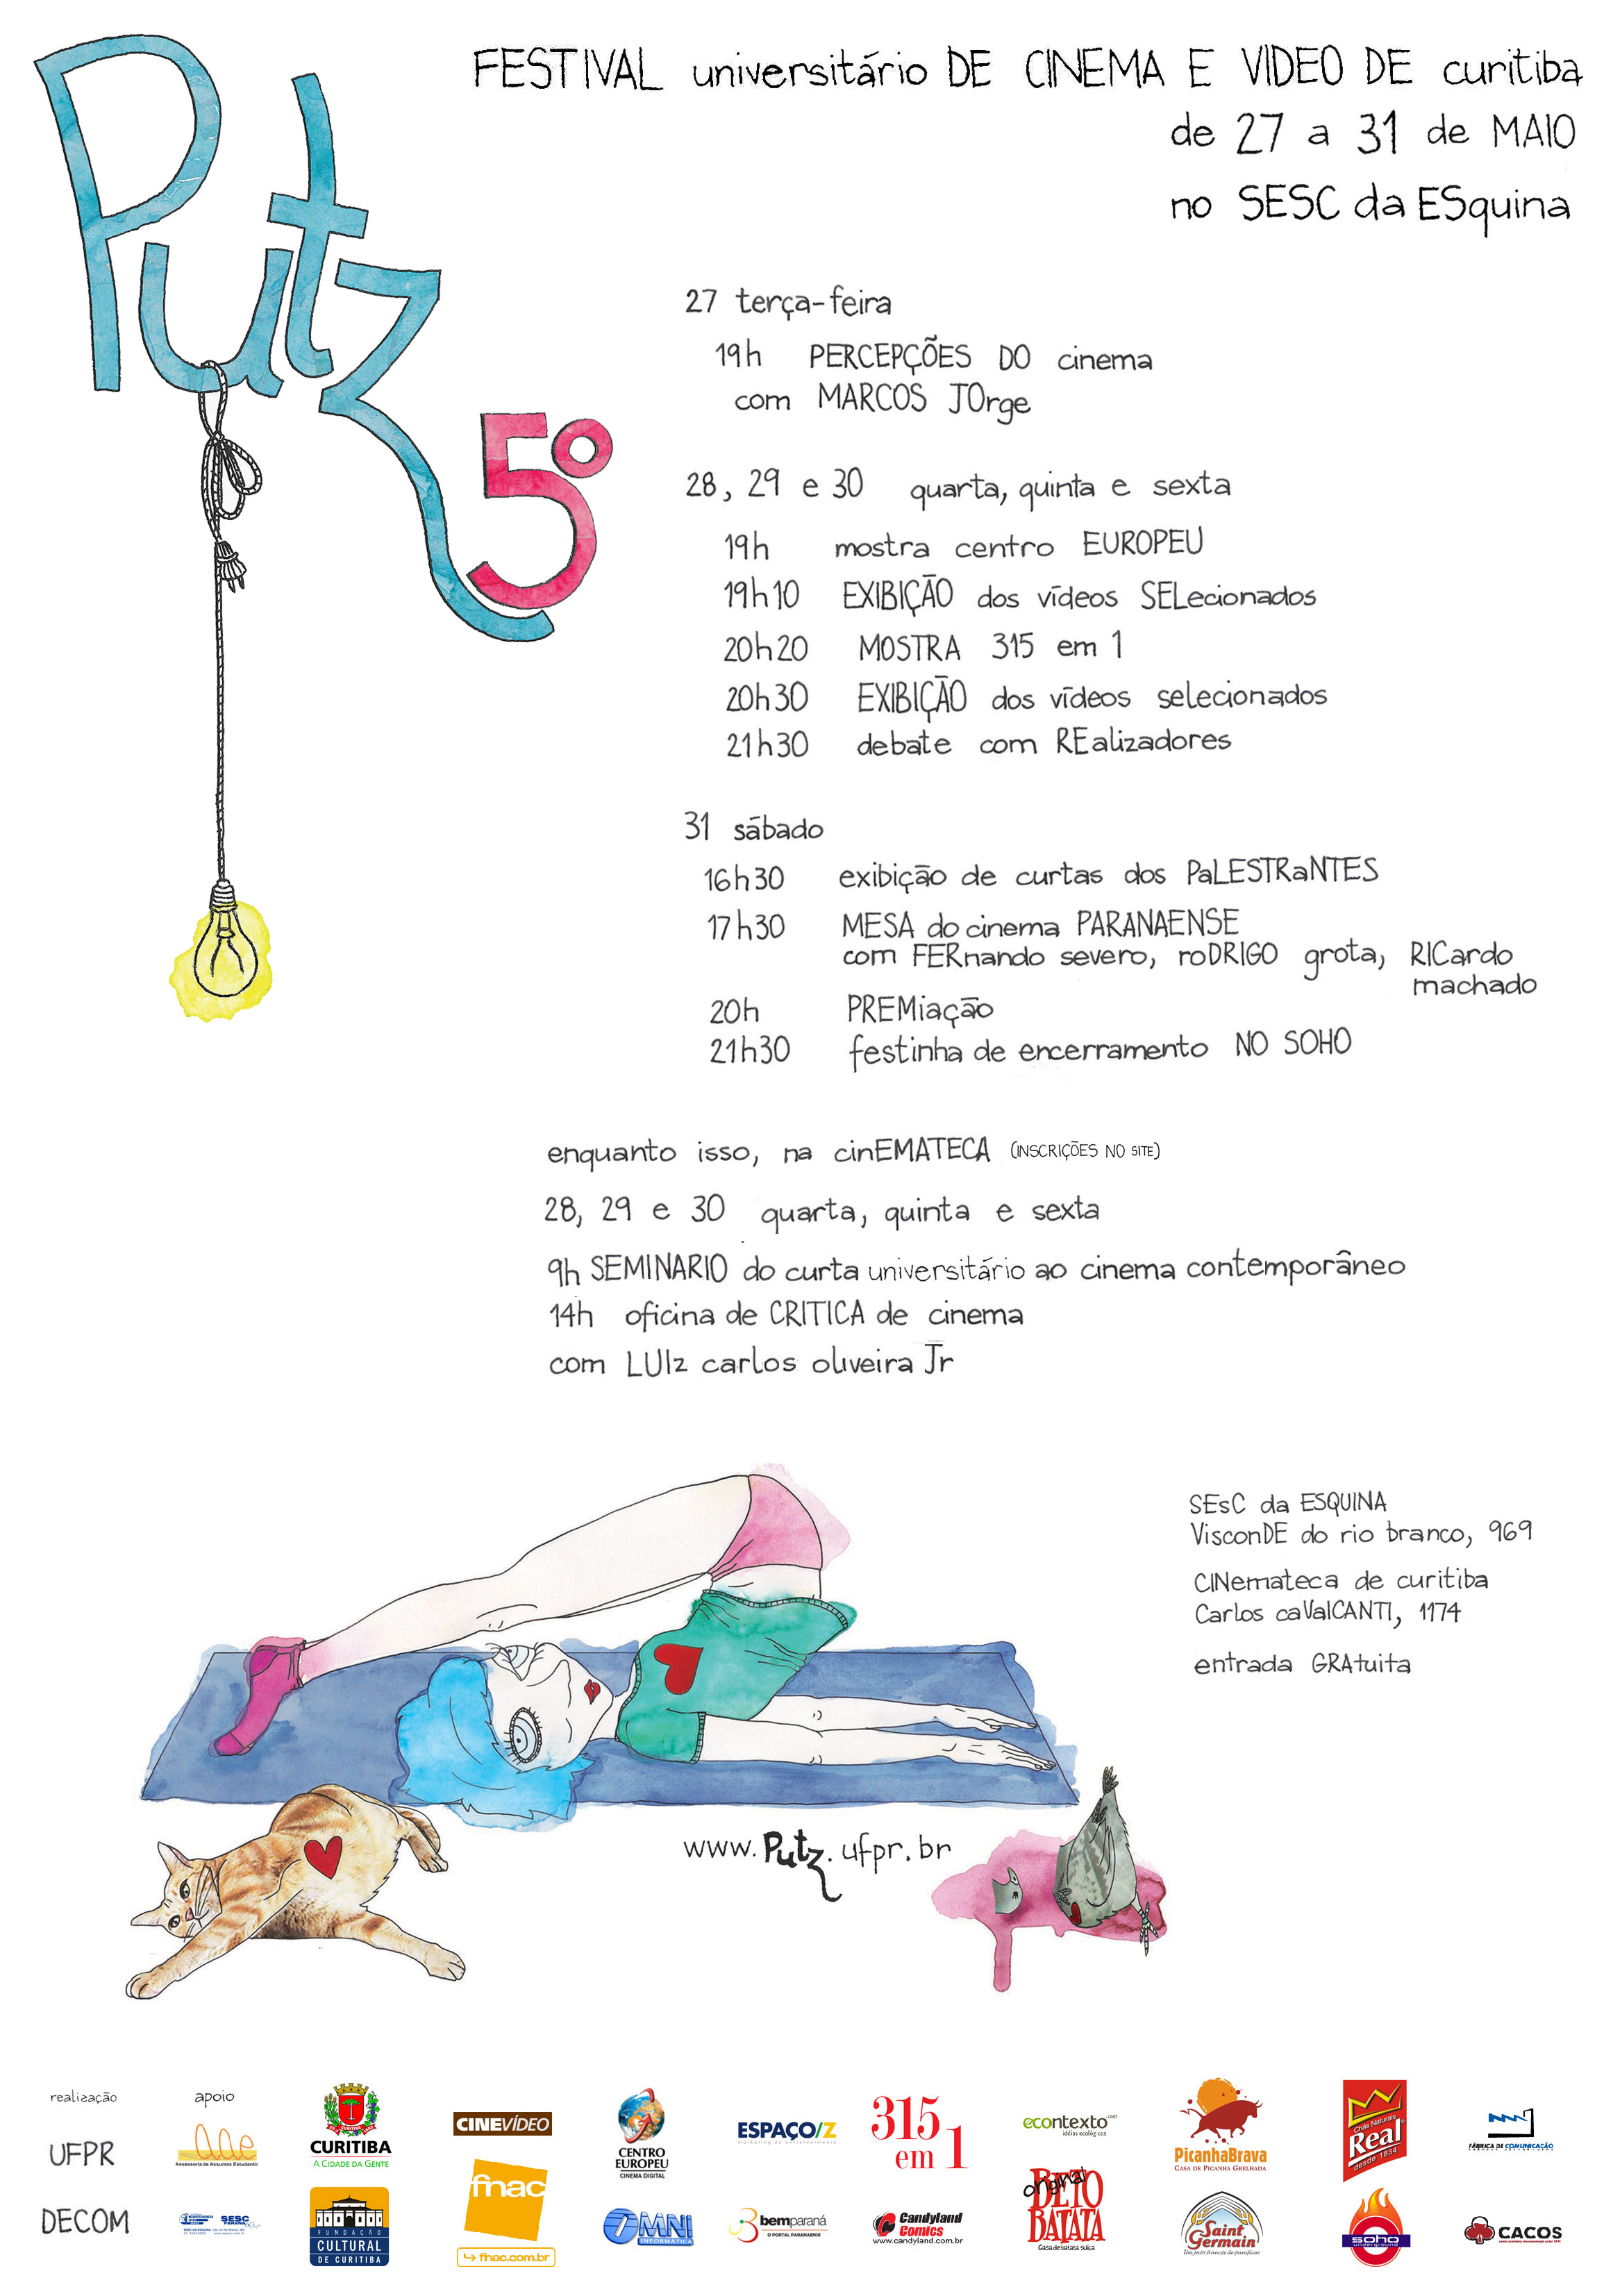 Putz 5º
FESTIVAL universitário DE CINEMA E VIDEO DE curitiba
de 27 a 31 de MAIO
no SESC da ESquina
27 terça-feira
19h PERCEPÇÕES DO cinema
com MARCOS JOrge
28, 29 e 30 quarta, quinta e sexta
19h mostra centro EUROPEU
19h10 EXIBIÇÃO dos vídeos SELecionados
20h20 MOSTRA 315 em 1
20h30 EXIBIÇÃO dos vídeos selecionados
21h30 debate com REalizadores
31 sábado
16h30 exibição de curtas dos PaLESTRaNTES
17h30 MESA do cinema PARANAENSE
com FERnando severo, roDRIGO grota, RICardo
machado
20h PREMiação
21h30 festinha de encerramento NO SOHO
enquanto isso, na cinEMATECA (INSCRIÇÕES NO SITE)
28, 29 e 30 quarta, quinta e sexta
9h SEMINARIO do curta universitário ao cinema contemporâneo
14h oficina de CRITICA de cinema
com LUIz carlos oliveira Jr
SEsC da ESQUINA
VisconDE do rio branco, 969
CINemateca de curitiba
Carlos caValCANTI, 1174
entrada GRAtuita
www.Putz.ufpr.br
realização
UFPR
DECOM
apoio
aae
Assessoria de Assuntos Estudantis
SESC
CURITIBA
A CIDADE DA GENTE
FUNDAÇÃO
CULTURAL
DE CURITIBA
CINEVÍDEO
fnac
fnac.com.br
CENTRO
EUROPEU
CINEMA DIGITAL
OMNI
INFORMÁTICA
ESPAÇO/Z
bemparaná
O PORTAL PARANAENSE
315
em 1
Candyland
Comics
www.candyland.com.br
econtexto
idéias ecológicas
original
BETO
BATATA
Casa de batata suíça
PicanhaBrava
CASA DE PICANHA GRELHADA
Saint
Germain
Um jeito francês de panificar
Chás Naturais
Real
desde 1834
soho
underground
FÁBRICA DE COMUNICAÇÃO
CACOS